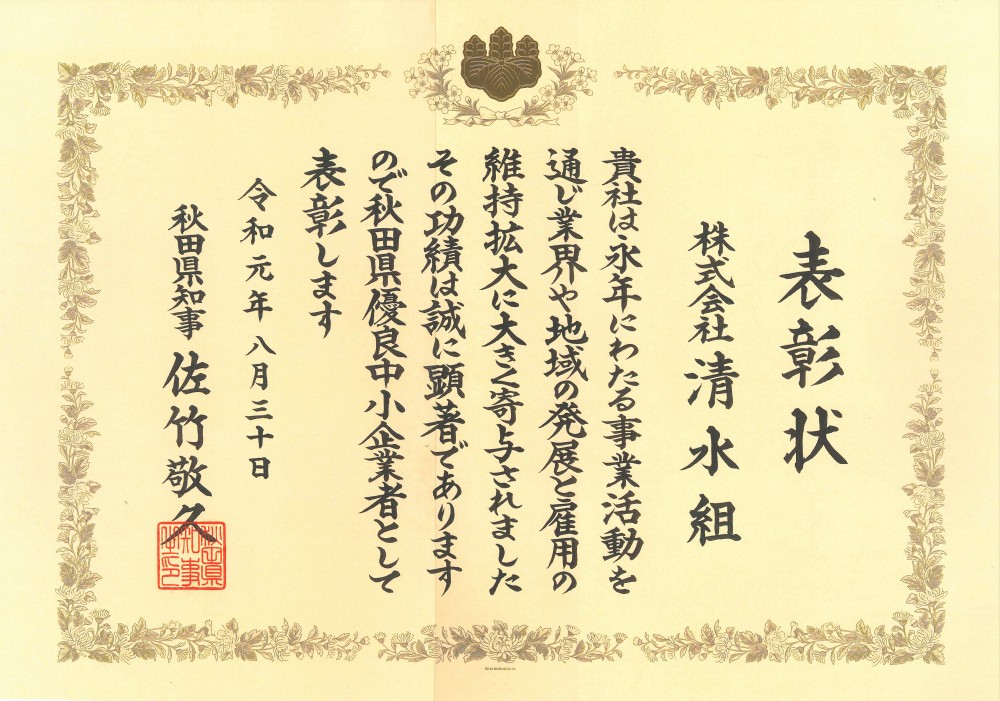 表彰状
株式会社 清水組
貴社は永年にわたる事業活動を
通じ業界や地域の発展と雇用の
維持拡大に大きく寄与されました
その功績は誠に顕著であります
ので秋田県優良中小企業者として
表彰します
令和元年八月三十日
秋田県知事 佐竹敬久